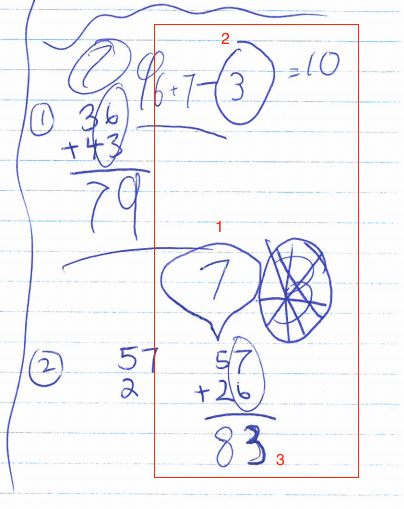 2
7 9 6+7-3 =10
① 36
+43
79
1
7
② 57 57
2 +26
83
3